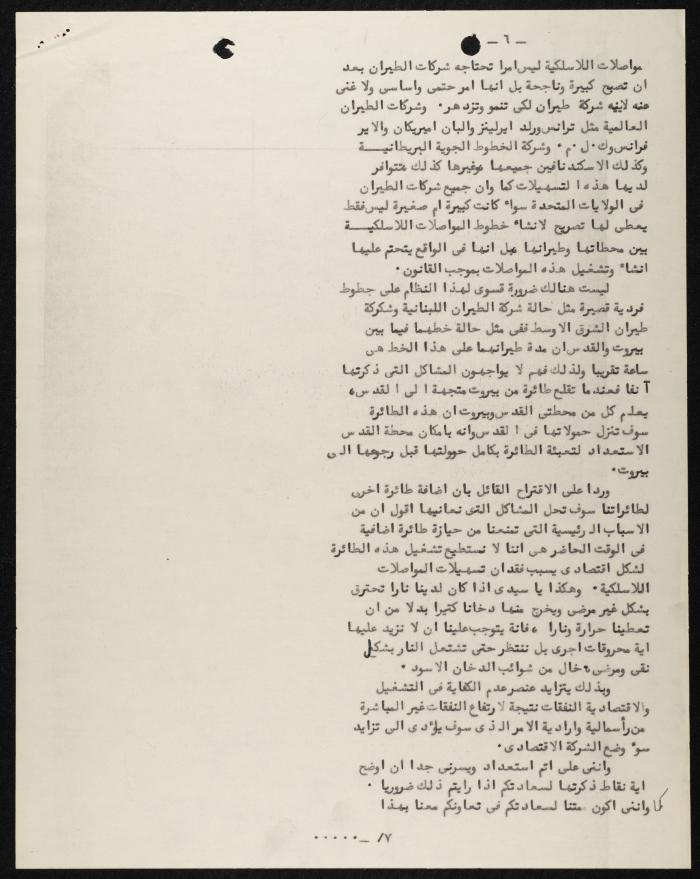 – ٦ –
مواصلات اللاسلكية ليس امرا تحتاجه شركات الطيران بعد
ان تصبح كبيرة وناجحة بل انها امر حتمى واساسى ولا غنى
عنه لاية شركة طيران لكى تنمو وتزدهر٠ وشركات الطيران
العالمية مثل ترانس ورلد ايرلينز والبان اميريكان والاير
فرانس وك٠ل٠م٠ وشركة الخطوط الجوية البريطانيـــة
وكذلك الاسكندنافين جميعها وغيرها كذلك متوافر
لديها هذه التسهيلات كما وان جميع شركات الطيران
فى الولايات المتحدة سواء كانت كبيرة ام صغيرة ليس فقط
يعطى لها تصريح لانشاء خطوط المواصلات اللاسلكيــــة
بين محطاتها وطيرانها بل انها فى الواقع يتحتم عليها
انشاء وتشغيل هذه المواصلات بموجب القانون٠
ليست هنالك ضرورة قسوى لهذا النظام على جطوط
فردية قصيرة مثل حالة شركة الطيران اللبنانية وشكركة
طيران الشرق الاوسط ففى مثل حالة خطهما فيما بين
بيروت والقدس ان مدة طيرانهما على هذا الخط هى
ساعة تقريبا ولذلك فهم لا يواجهون المشاكل التى ذكرتها
آنفا فعندما تقلع طائرة من بيروت متجهة الى القدس،
يعلم كل من محطتى القدس وبيروت ان هذه الطائرة
سوف تنزل حمولاتها فى القدس وانه بامكان محطة القدس
الاستعداد لتعبئة الطائرة بكامل حوولتها قبل رجوعها الى
بيروت٠
وردا على الاقتراح القائل بان اضافة طائرة اخرى
لطائراتنا سوف تحل المشاكل التى نعانيها اقول ان من
الاسباب الرئيسية التى تمنعنا من حيازة طائرة اضافية
فى الوقت الحاضر هى اننا لا نستطيع تشغيل هذه الطائرة
لشكل اقتصادى يسبب فقدان تسهيلات المواصلات
اللاسلكية٠ وهكذا يا سيدى اذا كان لدينا نارا تحترق
بشكل غير مرضى ويخرج منها دخانا كثيرا بدلا من ان
تعطينا حرارة ونارا ، فانة يتوجب علينا ان لا نزيد عليها
اية محروقات اجرى بل ننتظر حتى تشتعل النار بشكل
نقى ومرضى خال من شوائب الدخان الاسود ٠
وبذلك يتزايد عنصر عدم الكفاية فى التشغيل
والاقتصادية النفقات نتيجة لارتفاع النفقات غير المباشرة
من رأسمالية وارادية الامر الذى سوف يؤدى الى تزايد
سوء وضع الشركة الاقتصادى٠
وانى على اتم استعداد ويسرنى جدا ان اوضح
اية نقاط ذكرتها لسعادتكم اذا رايتم ذلك ضروريا ٠
كما وانى اكون ممتنا لسعادتكم فى تعاونكم معنا بهذا
٧/ –٠٠٠٠٠